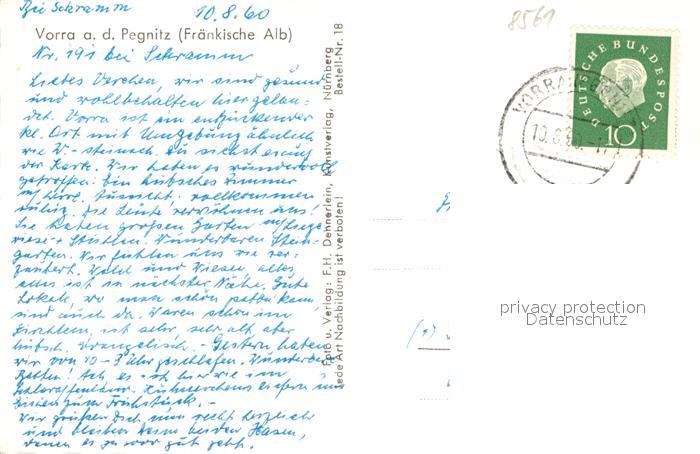 Bei Schramm
10.8.60
8561
Vorra a. d. Pegnitz (Fränkische Alb)
Nr. 191 bei Schramm
Liebes Verchen, wir sind gesund
und wohlbehalten hier gelan-
det. Vorra ist ein entzückender
kl. Ort mit Umgebung ähnlich
wie V-steinach. Du siehst es auf
der Karte. Wir haben es wundervoll
getroffen: Ein hübsches Zimmer
mit Aussicht, vollkommen
ruhig. Die Leute verwöhnen uns!
Sie haben großen Garten mit Liege-
wiese + Stühlen. Wunderbaren Stein-
garten. Wir fühlen uns wie ver-
zaubert. Wald und Wiesen, alles,
alles ist in nächster Nähe. Gute
Lokale, wo man schön kann,
sind auch da. Waren schon im
Kirchlein, ist sehr, sehr alt aber
hübsch. Evangelisch. - Gestern haben
wir von 10-3 Uhr geschlafen. Wunderbare
Betten! Ach, es ist hier wie im
Schlaraffenland.
zum Frühstück. -
Wir grüßen Dich nun recht herzlich
und bleiben Deine beiden Hasen,
denen es so gut geht.
Foto u. Verlag: F. H. Dehnerlein, Kunstverlag, Nürnberg
Jede Art Nachbildung ist verboten!
Bestell-Nr. 18
DEUTSCHE BUNDESPOST
10
VORRA
10.8.60
privacy protection
Datenschutz